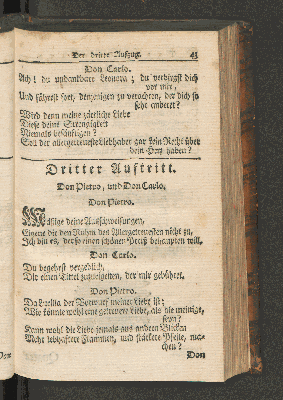 Der dritte Aufzug. 43
Don Carlo.
Ach! du undankbare Leonora; du verbirgst dich
vor mir,
Und fährest fort, denjenigen zu verachten, der dich so
sehr anbetet?
Wird denn meine zärtliche Liebe
Diese deine Strengigkeit
Niemals besänftigen?
Soll der allergetreuste Liebhaber gar kein Recht über
dein Herz haben?
Dritter Auftritt.
Don Pietro, und Don Carlo.
Don Pietro.
Mäßige deine Ausschweifungen,
Eigene dir den Ruhm des Allergetreuesten nicht zu,
Ich bin es, der so einen schönen Preiß behaupten will.
Don Carlo.
Du begehrst vergeblich,
Dir einen Titel zuzueignen, der mir gebühret.
Don Pietro.
Da der Vorwurf meiner Liebe ist;
Wie könnte wohl eine getreuere Liebe, als die meinige,
seyn?
Kann wohl die Liebe jemals aus andern Blicken
Mehr lebhaftere Flammen, und stärkere Pfeile, ma-
chen?
Don